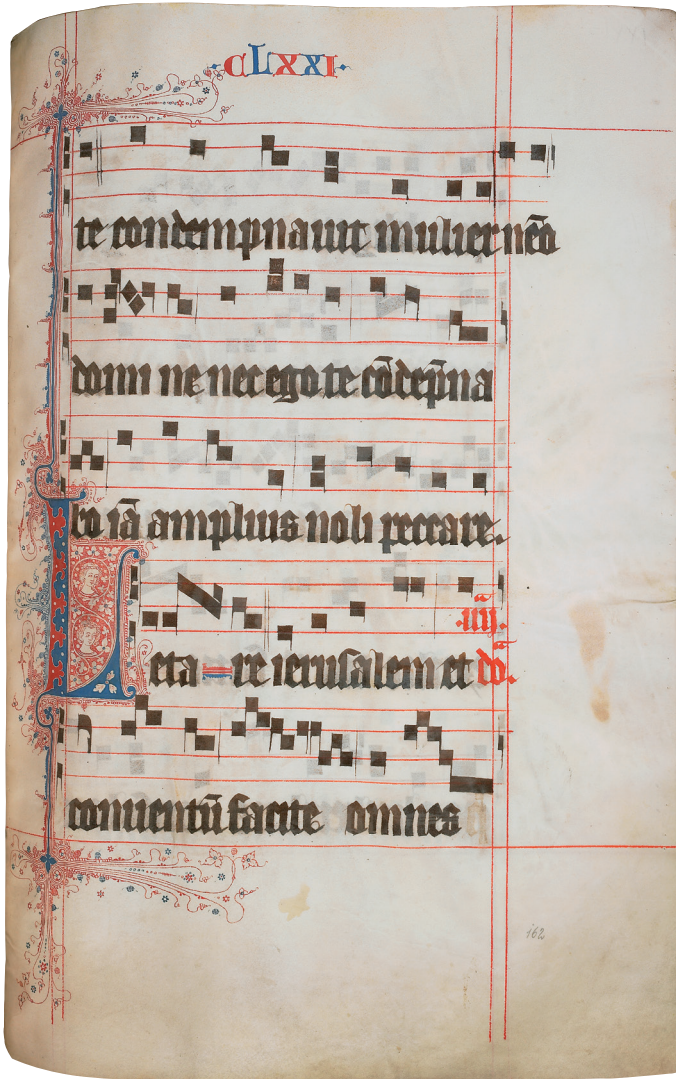 ·CLXXI·
te condempnauit mulier nēō
domi ne nec ego te cōdēpna
bo iā amplius noli peccare.
·iiij·
Leta re ierusalem et dō̄.
conuentū facite omnes
162